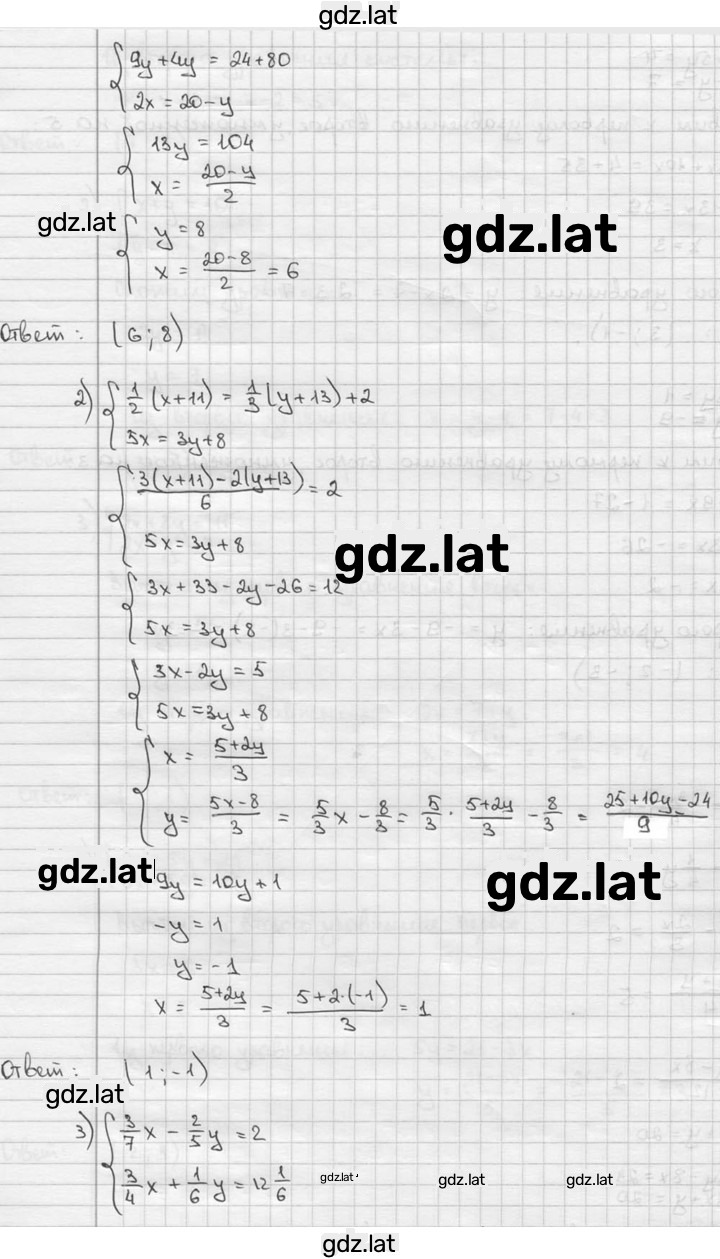 gdz.lat
{ 9y + 4y = 24 + 80
2x = 20 - y
{ 13y = 104
x = (20 - y)/2
gdz.lat
gdz.lat
{ y = 8
x = (20 - 8)/2 = 6
Ответ: (6; 8)
2) { 1/2 (x + 11) = 1/3 (y + 13) + 2
5x = 3y + 8
{ (3(x + 11) - 2(y + 13))/6 = 2
5x = 3y + 8
gdz.lat
{ 3x + 33 - 2y - 26 = 12
5x = 3y + 8
{ 3x - 2y = 5
5x = 3y + 8
{ x = (5 + 2y)/3
y = (5x - 8)/3 = 5/3 x - 8/3 = 5/3 · (5 + 2y)/3 - 8/3 = (25 + 10y - 24)/9
gdz.lat
9y = 10y + 1
gdz.lat
-y = 1
y = -1
x = (5 + 2y)/3 = (5 + 2·(-1))/3 = 1
Ответ: (1; -1)
gdz.lat
3) { 3/7 x - 2/5 y = 2
3/4 x + 1/6 y = 12 1/6
gdz.lat
gdz.lat
gdz.lat
gdz.lat